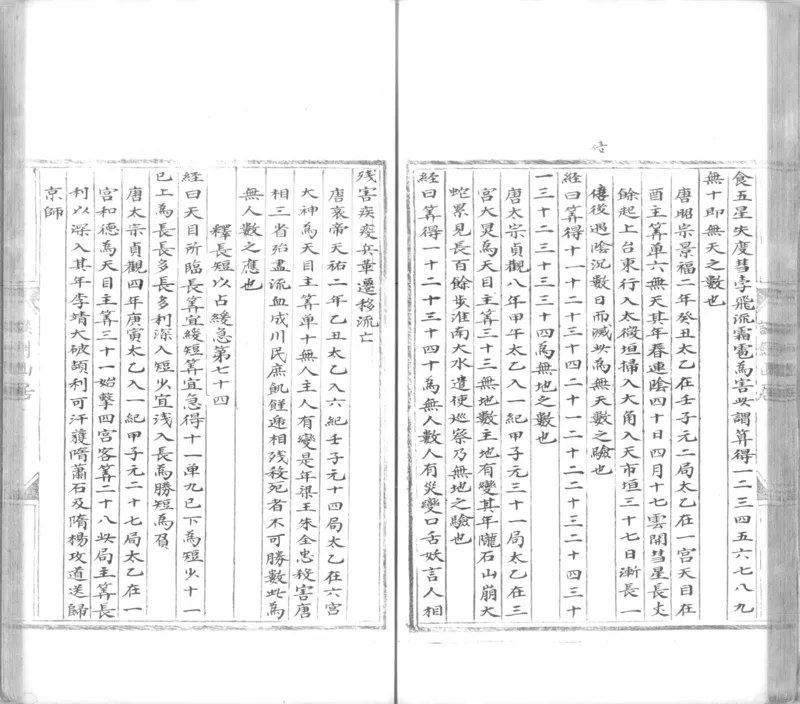 食五星失度彗孛飛流霜雹為害此謂算得一二三四五六七八九
無十即無天之數也
唐昭宗景福二年癸丑太乙在壬子元二局太乙在一宮天目在
酉主筭單六無天其年春連陰四十日四月十七雲開彗星長丈
餘起上台東行入太微垣掃入大角入天市垣三十七日漸長一
後過陰沉數日而滅此為無天數之驗也
経曰筭得十一十二十三十四二十一二十二二十三二十四三十
一三十二三十三三十四為無地之數也
唐太宗貞觀八年甲午太乙入一紀甲子元三十一局太乙在三
宮大炅為天目主筭三十三無地數主地有變其年隴石山崩大
蛇累見長百餘步淮南大水遣使巡察乃無地之驗也
経曰筭得一十二十三十四十為無人數人有災變口舌妖言人相
残害疾疫兵革遷移流亡
唐哀帝天祐二年乙丑太乙入六紀壬子元十四局太乙在六宮
大神為天目主筭單十無人主人有變是年梁王朱全忠殺害唐
相三省殆盡流血成川民庶飢饉逓相残殺死者不可勝數此為
無人數之應也
釋長短以占緩急第七十四
経曰天目所臨長筭宜緩短筭宜急得十一單九已下為短少十一
已上為長長多長多利深入短少宜淺入長為勝短為負
唐太宗貞觀四年庚寅太乙入一紀甲子元二十七局太乙在一
宮和德為天目主筭三十一始擊四宮客筭二十八此局主筭長
利以深入其年李靖大破頡利可汗獲隋蕭石及隋楊攻道送歸
京師